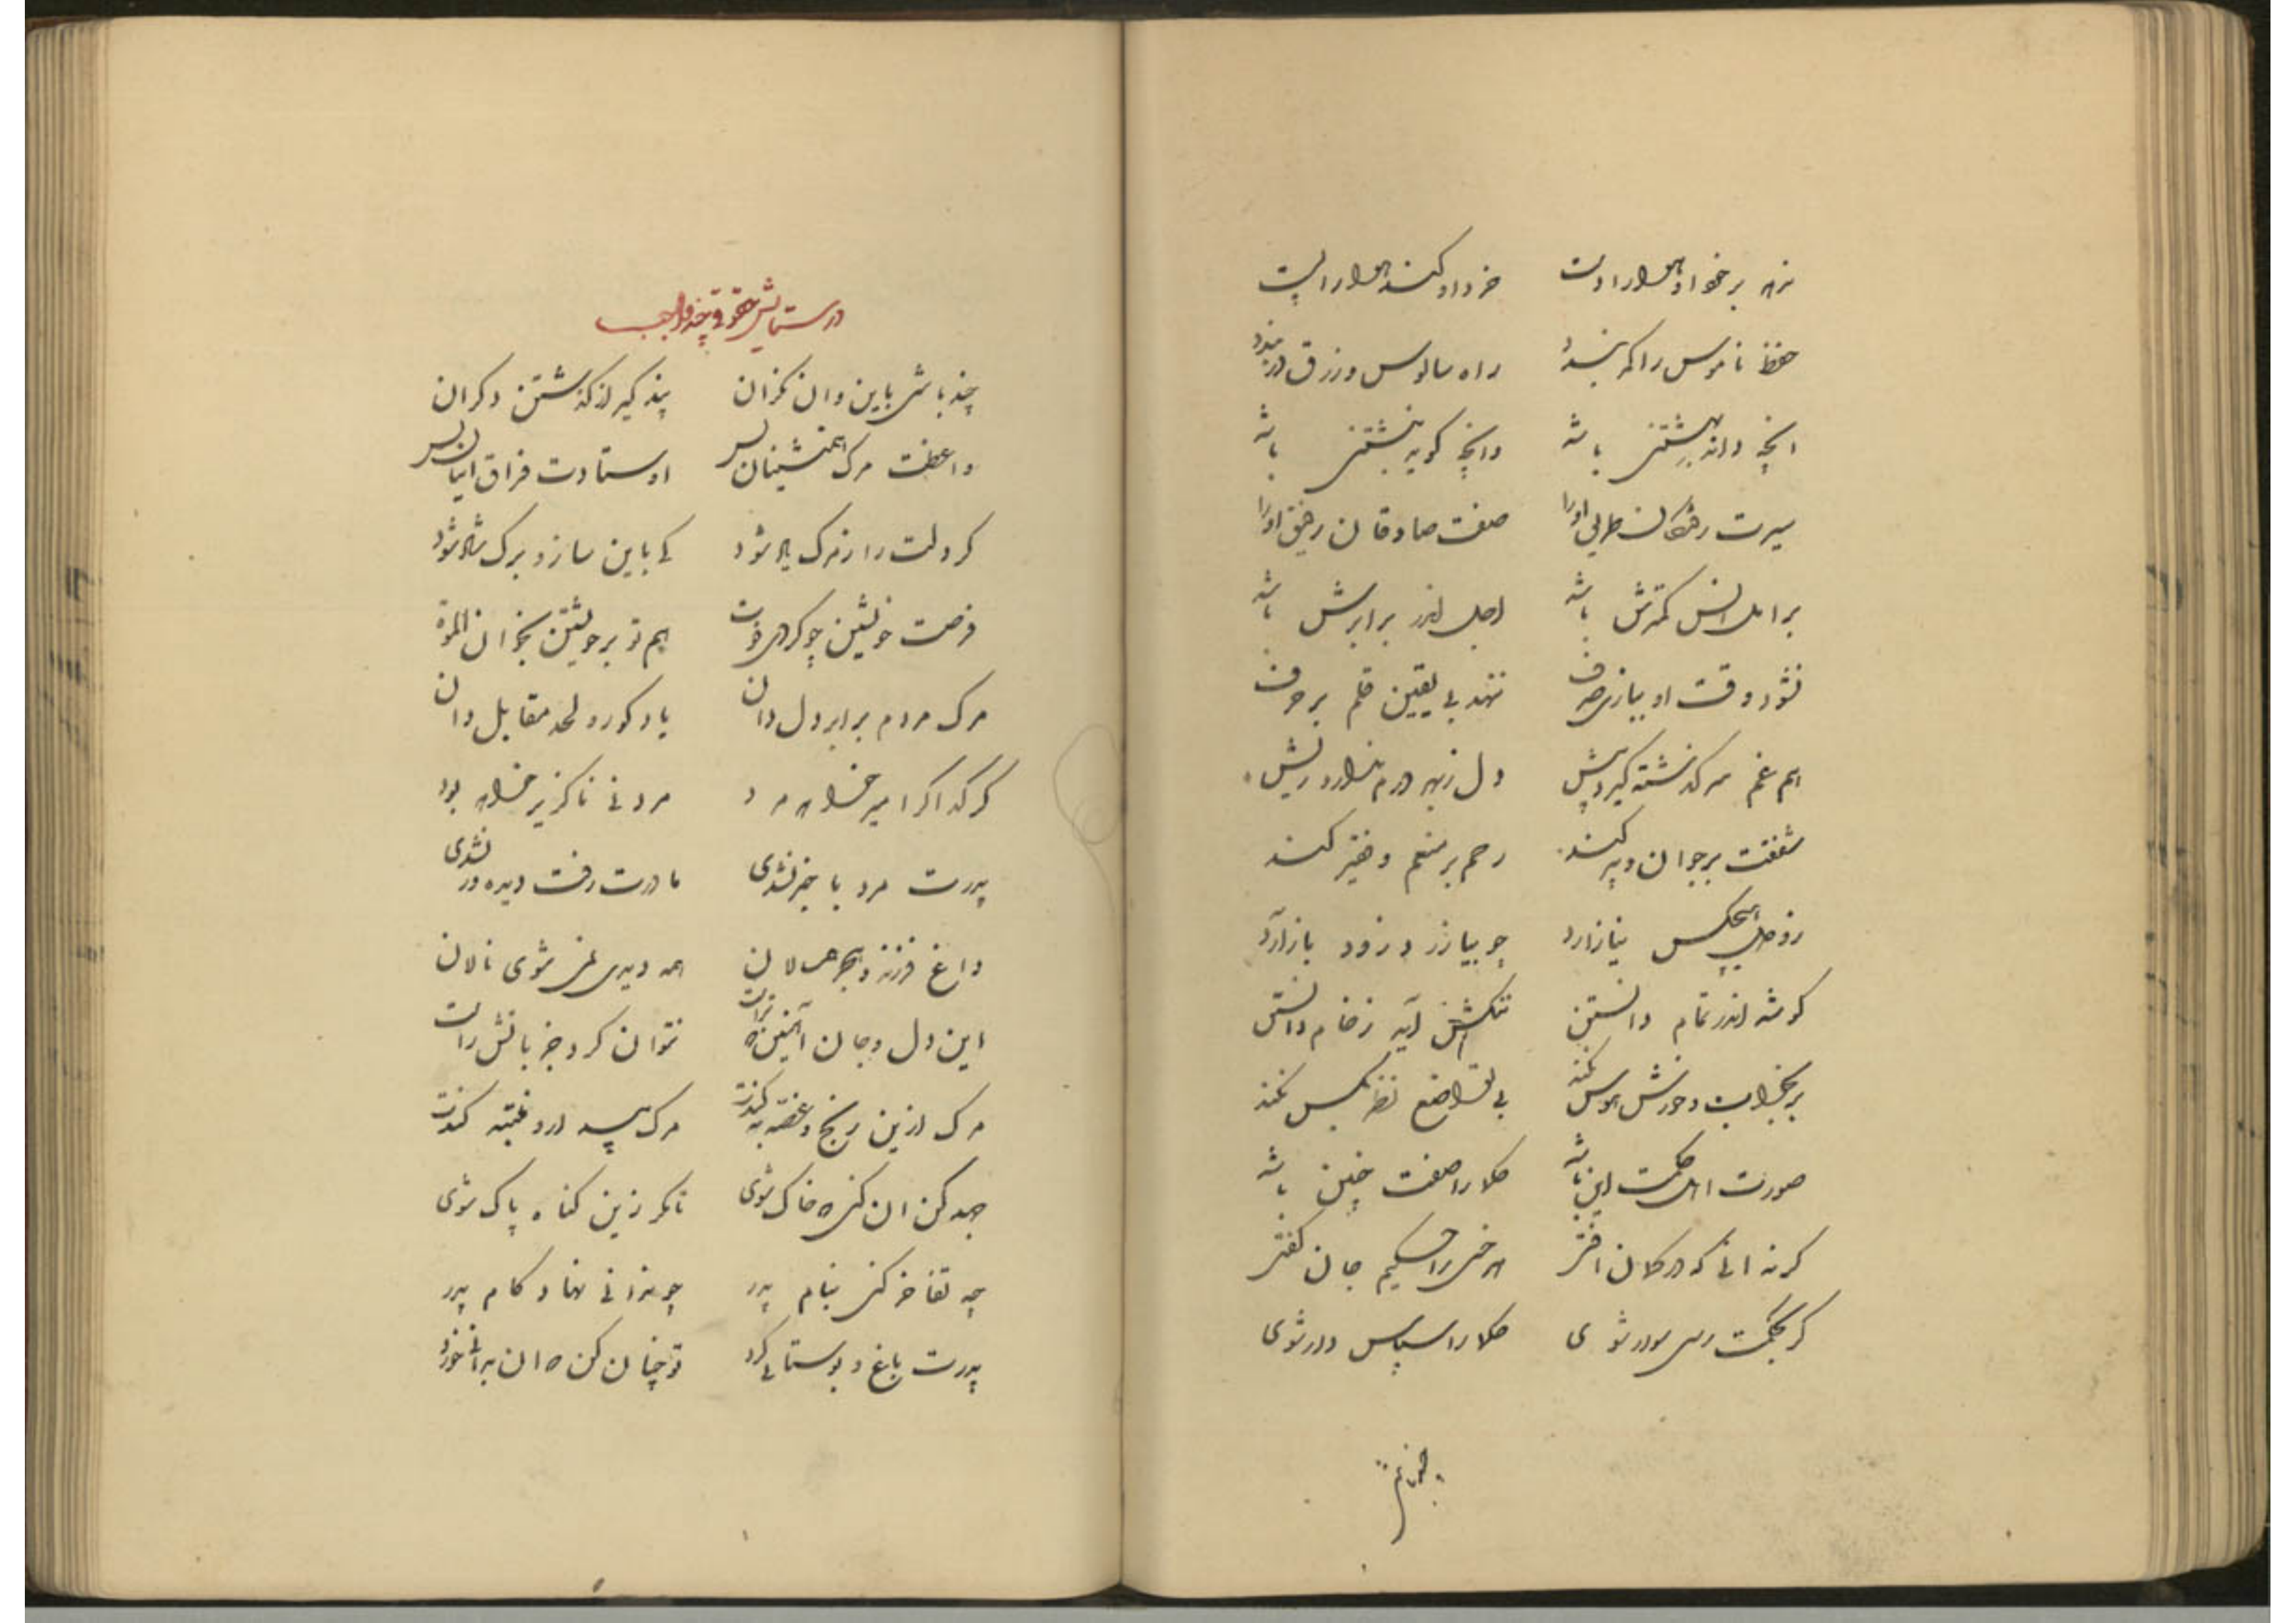 حفظ ناموس را که بندد راه سالوس و زرق در بندد
انچه داند بهشتنی باشد وانچه گوید نبشتنی باشد
سیرت رفتگان طریق اورا صفت صادقان رفیق اورا
امل کمترش باشد اجل اندر برابرش باشد
نشود وقت او ببازی صرف ننهد بی یقین قلم بر حرف
هم غم سرگذشته گیرد پیش دل ز بهر درم ندارد ریش
شفقت بر جوان و پیر کند رحم بر منعم و فقیر کند
هیچکس نیازارد چو بیازرد زود باز آرد
گوشد اندر تمام دانستن ننگش آید ز خام دانستن
بر بخواب و خورش هوس نکند بی تواضع نظر بکس نکند
صورت اهل حکمت این باشد حکما را صفت چنین باشد
گر نه آنی که در کلان افتی هر خسی را حکیم جان گفتی
گر بحکمت رسی سوار شوی حکما را سپاس دار شوی
در ستایش
چند باشی باین و ان نگران پند گیر از گذشتن دگران
واعظت مرگ همنشینان بس اوستادت فراق اینان بس
گر دلت را ز مرگ یاد شود کی باین ساز و برگ شاد شود
فرصت خویشتن چو کردی فوت هم تو بر خویشتن بخوان الموت
مرگ مردم برابر دل دان یاد گور و لحد مقابل دان
گر گدا گر امیر خواهد مرد مردنی ناگزیر خواهد بود
پدرت مرد با خبر نشدی مادرت رفت دیده ور نشدی
داغ فرزند و هجر همسالان همه دیدی نمی شوی نالان
این دل و جان آهنین که تراست نتوان کرد جز بآتش راست
مرگ ازین رنج و غصه به کندت مرگ
جهد کن ان کنی که خاک شوی تا مگر زین گناه پاک شوی
چه تفاخر کنی بنام پدر چو ندانی نهاد کام پدر
پدرت باغ و بوستانی کرد تو چنان کن که ان